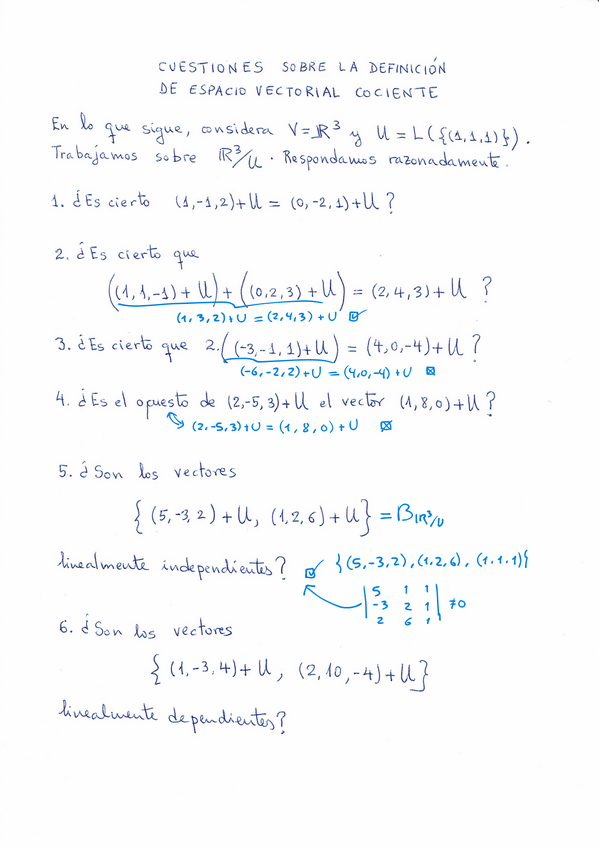 CUESTIONES SOBRE LA DEFINICIÓN
DE ESPACIO VECTORIAL COCIENTE
En lo que sigue, considera V=ℝ³ y U = L({(1,1,1)}).
Trabajamos sobre ℝ³/U. Respondamos razonadamente.
1. ¿Es cierto (1,-1,2)+U = (0,-2,1)+U?
2. ¿Es cierto que
((1,1,-1)+U)+((0,2,3)+U) = (2,4,3)+U ?
(1,3,2)+U = (2,4,3)+U ☑
3. ¿Es cierto que 2.((-3,-1,1)+U) = (4,0,-4)+U?
(-6,-2,2)+U = (4,0,-4)+U ☒
4. ¿Es el opuesto de (2,-5,3)+U el vector (1,8,0)+U?
(2,-5,3)+U = (1,8,0)+U ☒
5. ¿Son los vectores
{(5,-3,2)+U, (1,2,6)+U} = B ℝ³/U
linealmente independientes? ☑ {(5,-3,2),(1,2,6),(1.1.1)}
|5 1 1|
|-3 2 1| ≠0
|2 6 1|
6. ¿Son los vectores
{(1,-3,4)+U, (2,10,-4)+U}
linealmente dependientes?